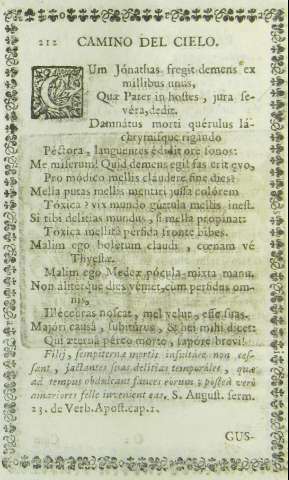 212 CAMINO DEL CIELO.
CUm Jónathas fregit demens ex
millibus unus,
Quæ Pater in hostes, jura se-
véra, dedit.
Damnátus morti quérulus lá-
chrymisque rigando
Péctora, languentes édidit ore sonos:
Me miserum! Quid demens egi! fas erit
Pro módico mellis cláudere fine dies?
Mella putas mellis mentiri jussa colórem
Tóxica? vix mundo gúttula mellis inest.
Si tibi delítias mundus, si mella propinat:
Tóxica mellíta pérfida fronte bibes.
Malim ego boletum claudi, cœnam vé
Thyestæ.
Malim ego Medeæ pócula mixta manu.
Non aliter que dies vemet, cum perfidus om-
nis,
Illécebras noscat, mel velut, esse suas.
Majóri causâ, subitúrus, & hei mihi dicet:
Qui æterna péreo morto, sapóre brevi!
Filij, sempiternæ mortis insultare non ces-
sant, jactantes suas delitias temporales, quæ
ad tempus obdulcant fauces eorum; posteà verò
amariores felle invenient eas. S. August. serm.
23. de Verb. Apost. cap. 1.
GUS-